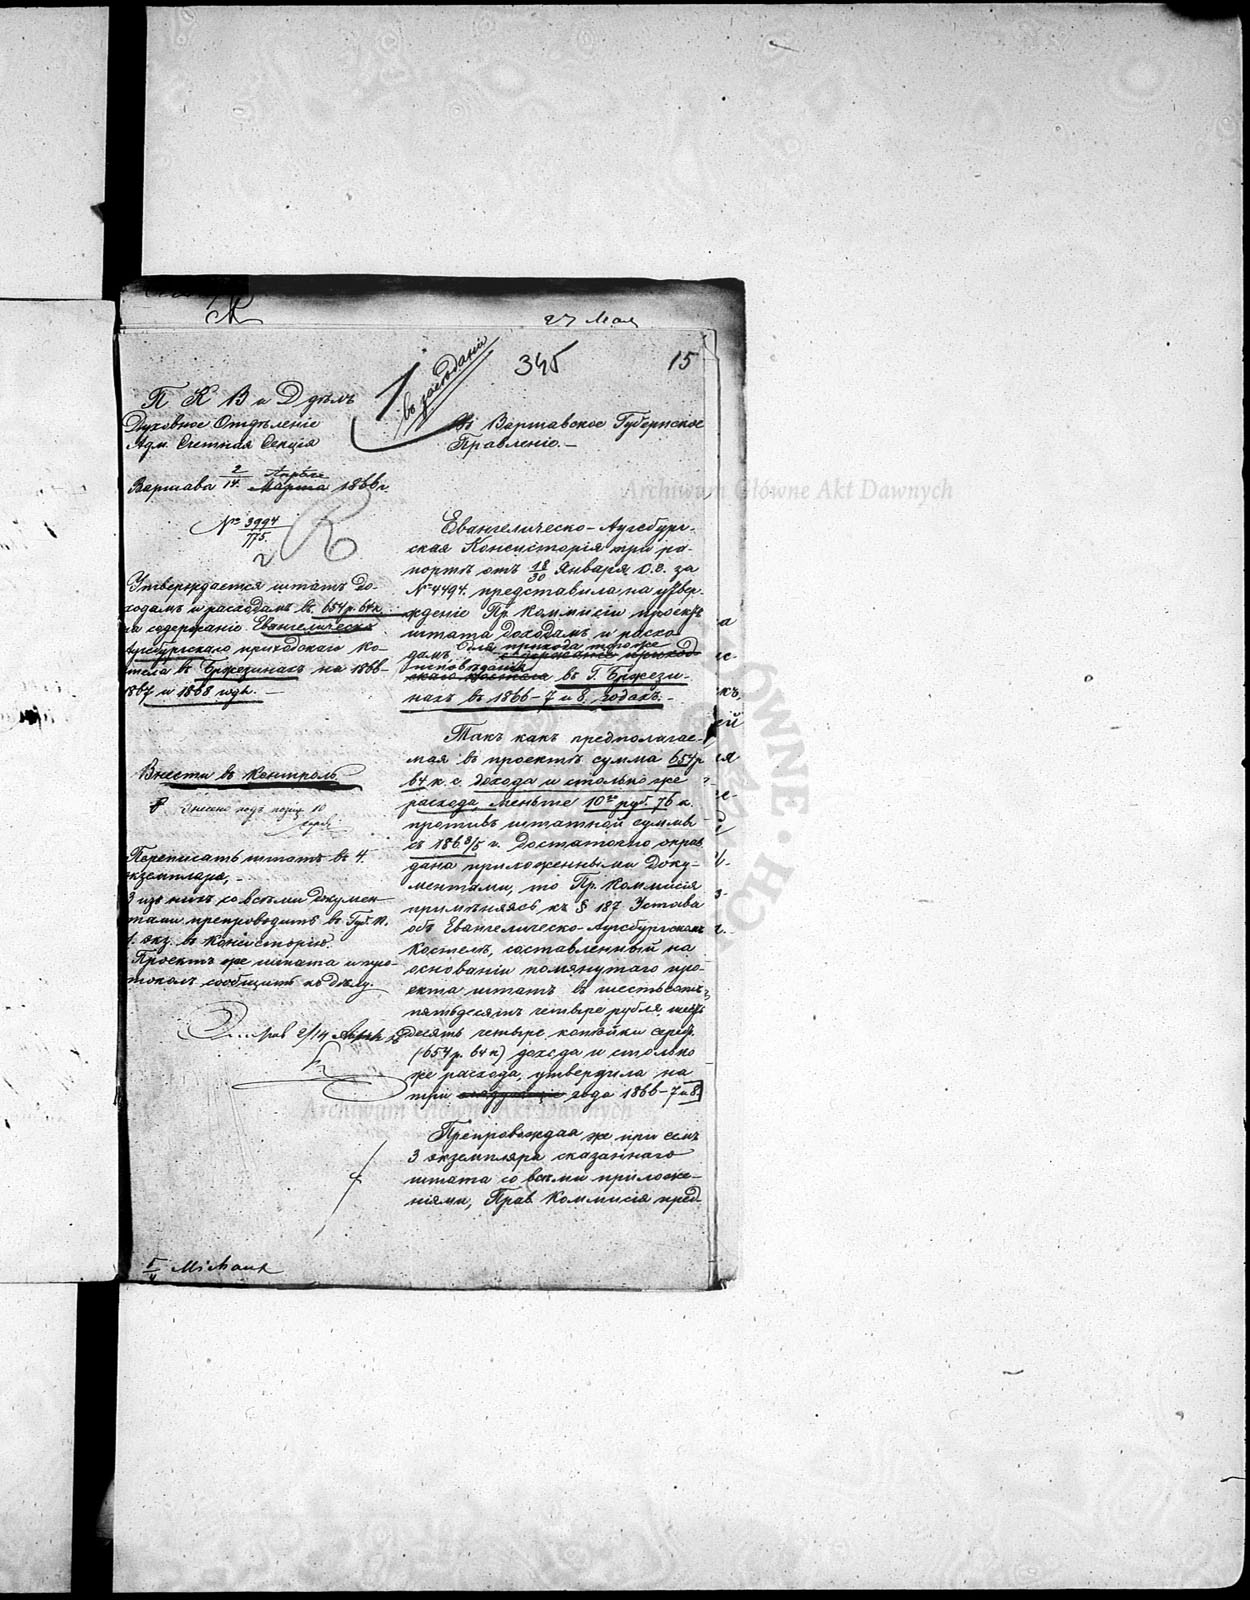 27 Мая
345
15
въ заседаніи
П К В и Д дѣлъ
Духовное Отдѣленіе
Адм. Счетная Секція
Варшава 2/14 Апрѣля Марта 1866 г.
№ 3994/775
Утверждается штатъ до-
ходамъ и расходамъ въ 654 р. 64 к.
на содержаніе Евангелическо
Аугсбургскаго приходскаго ко-
стела въ Бржезинахъ на 1866-
1867 и 1868 годы. —
Внести въ контроль
Внесено подъ позиц. 10
Переписать штатъ въ 4.
экземпляра, —
3 изъ нихъ со всѣми докумен-
тами препроводить въ Губ. П.
1. экз. въ Консисторію.
Проектъ же штата и про-
токолъ сообщить къ дѣлу.
2/14 Апрѣля
5/4 Michaux
Въ Варшавское Губернское
Правленіе. —
Евангелическо-Аугсбург-
ская Консисторія при ра-
портѣ отъ 18/30 Января с. г. за
№ 4494. представила, на утвер-
жденіе Пр. Коммисіи проектъ
штата доходамъ и расхо-
дамъ для прихода того же
содержаніе приход
исповѣданія
скаго костела въ Г. Бржези-
нахъ въ 1866-7 и 8 годахъ. —
Такъ какъ предполагае-
мая въ проектѣ сумма 654 р
64 к. с. дохода и столько же
расхода, меньше 10ю руб. 76 к.
противъ штатной суммы
съ 1863/5 г. достаточно оправ
дана приложенными доку-
ментами, то Пр. Коммисія
примѣняясь къ § 187 Устава
объ Евангелическо-Аугсбургскомъ
Костелѣ, составленный на
основаніи помянутаго про-
екта штатъ въ шестьсотъ
пятьдесятъ четыре рубля шесть
десятъ четыре копѣйки сереб.
(654 р. 64 к) дохода и столько
же расхода, утвердила на
три слѣдующіе года 1866-7 и 8.
Препровождая же при семъ
3 экземпляра сказаннаго
штата со всѣми приложе-
ніями, Прав. Коммисія пред
Archiwum Główne Akt Dawnych
Archiwum Główne Akt Dawnych